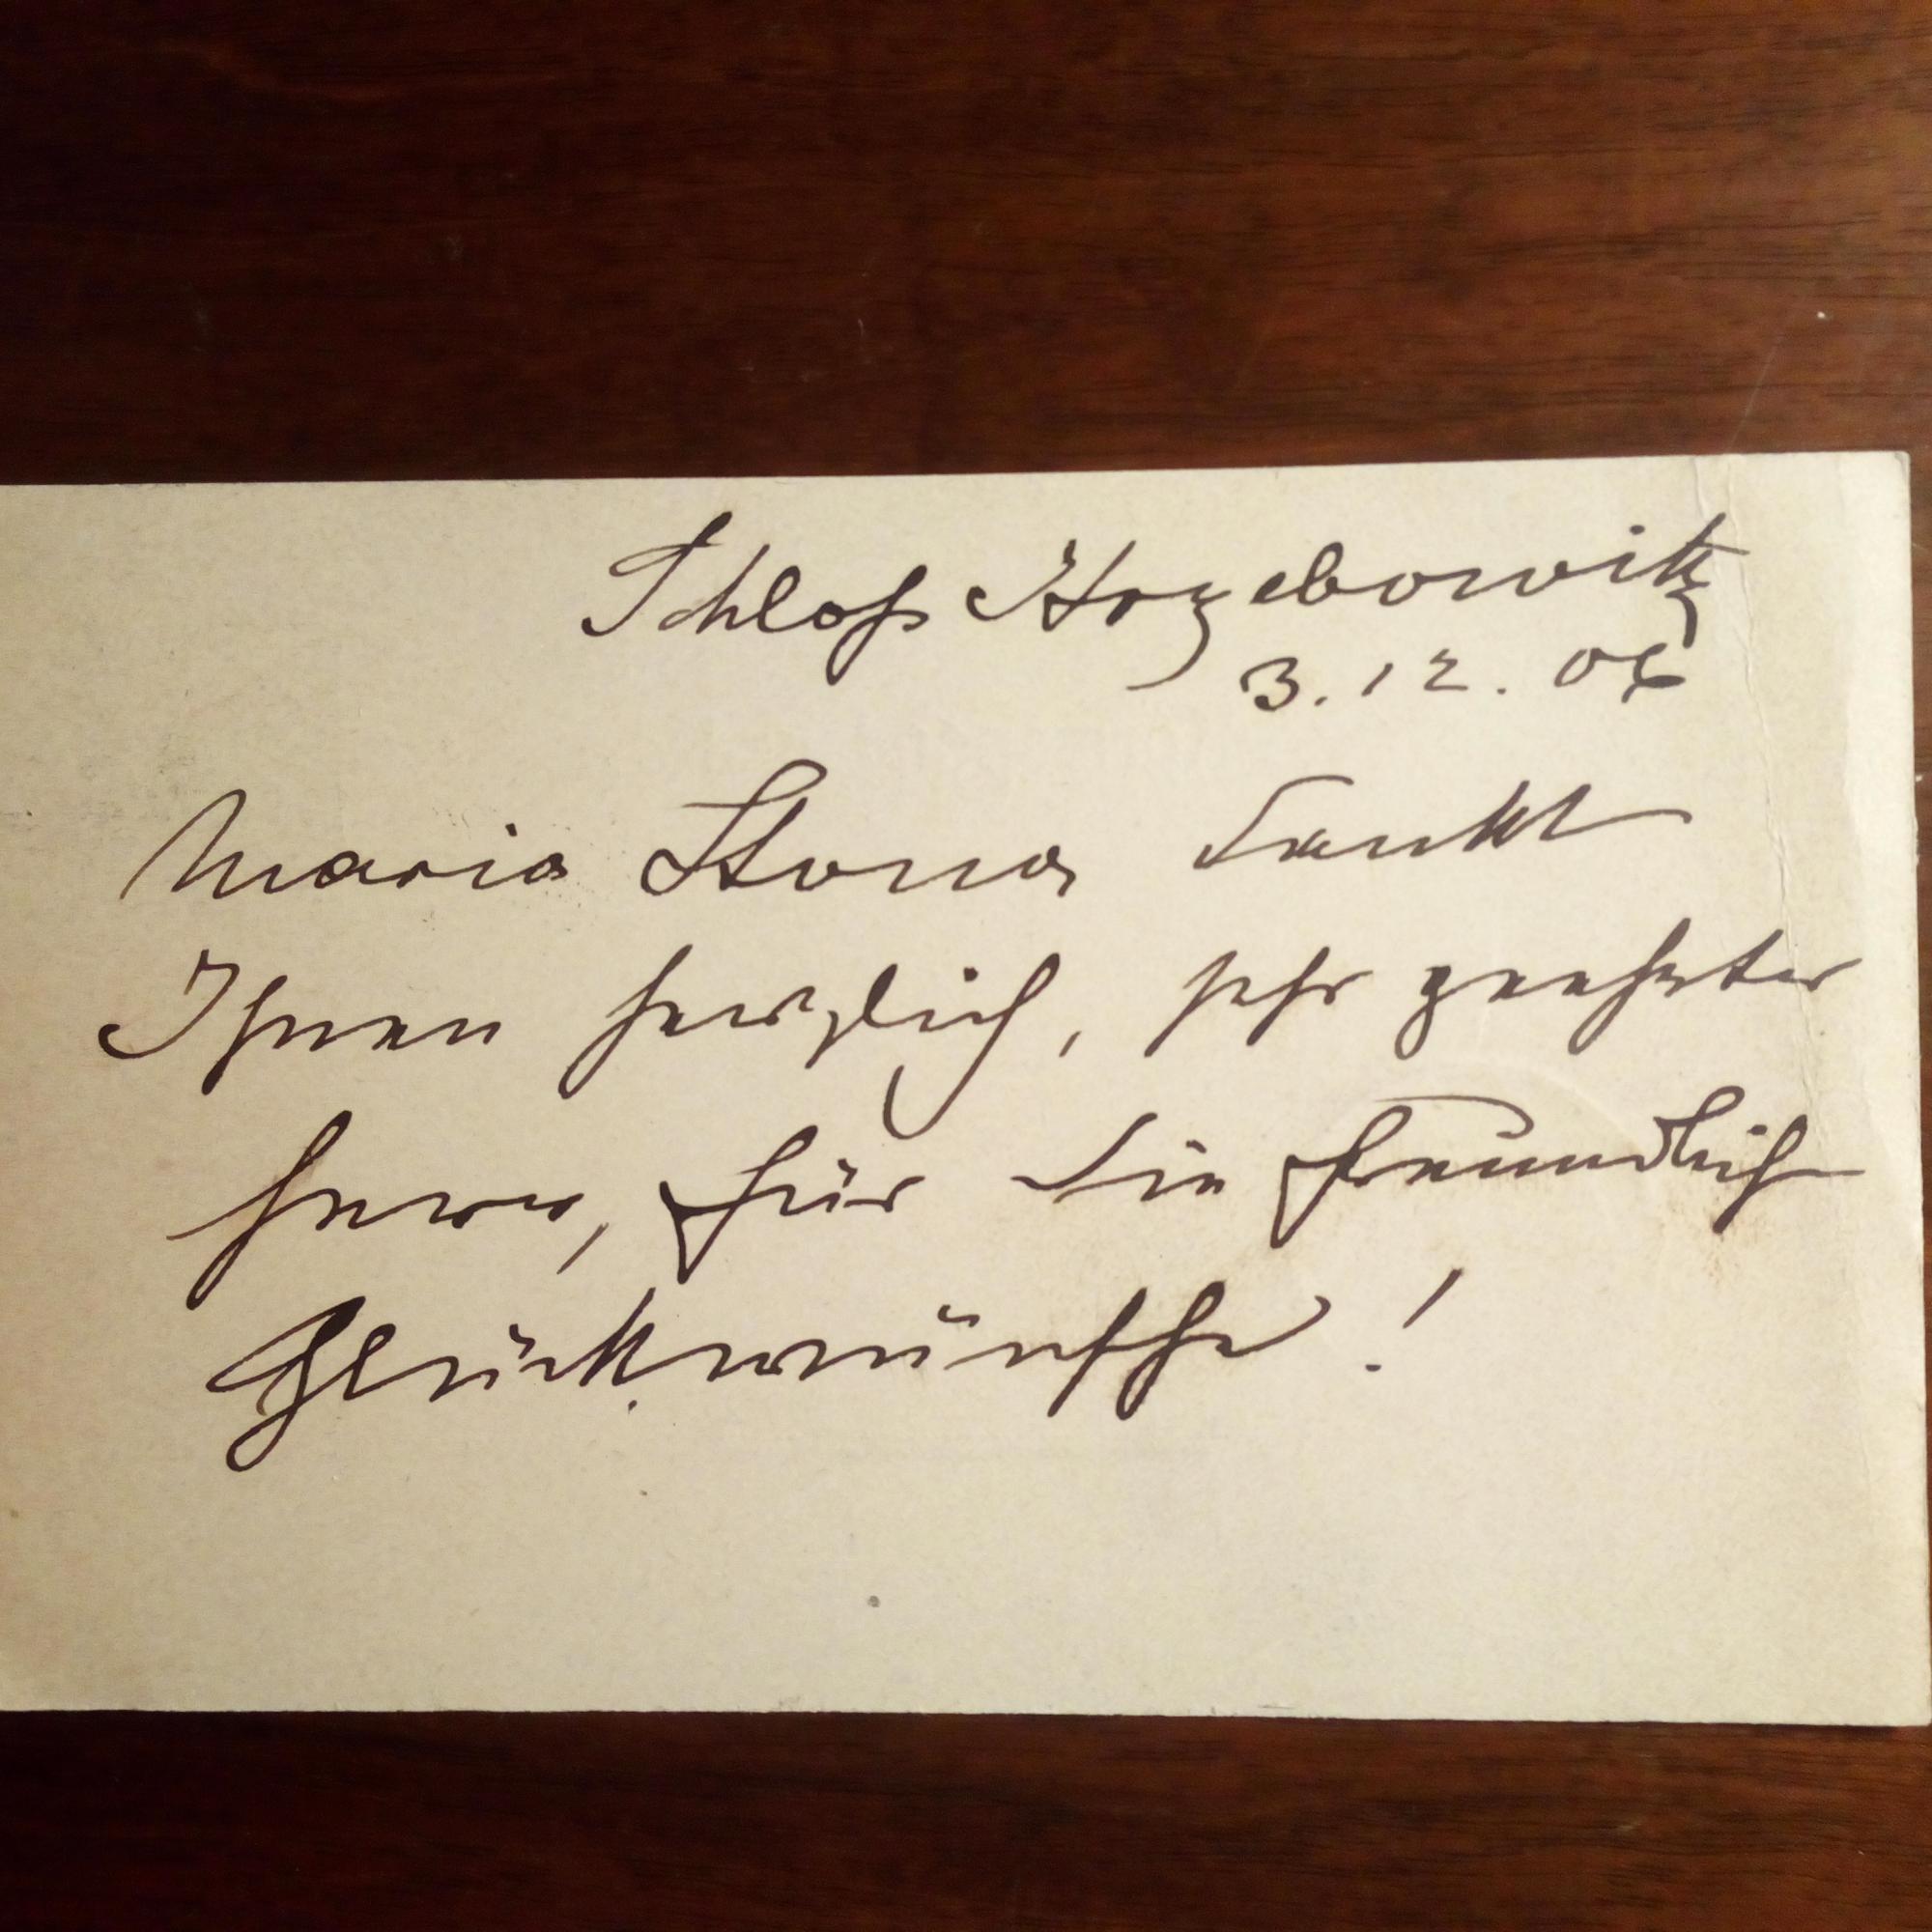 Schloß Strzebowitz
3.12.06
Maria Stona dankt
Ihnen herzlich, sehr geehrter
Herr, für die freundlich
Glückwünsche!